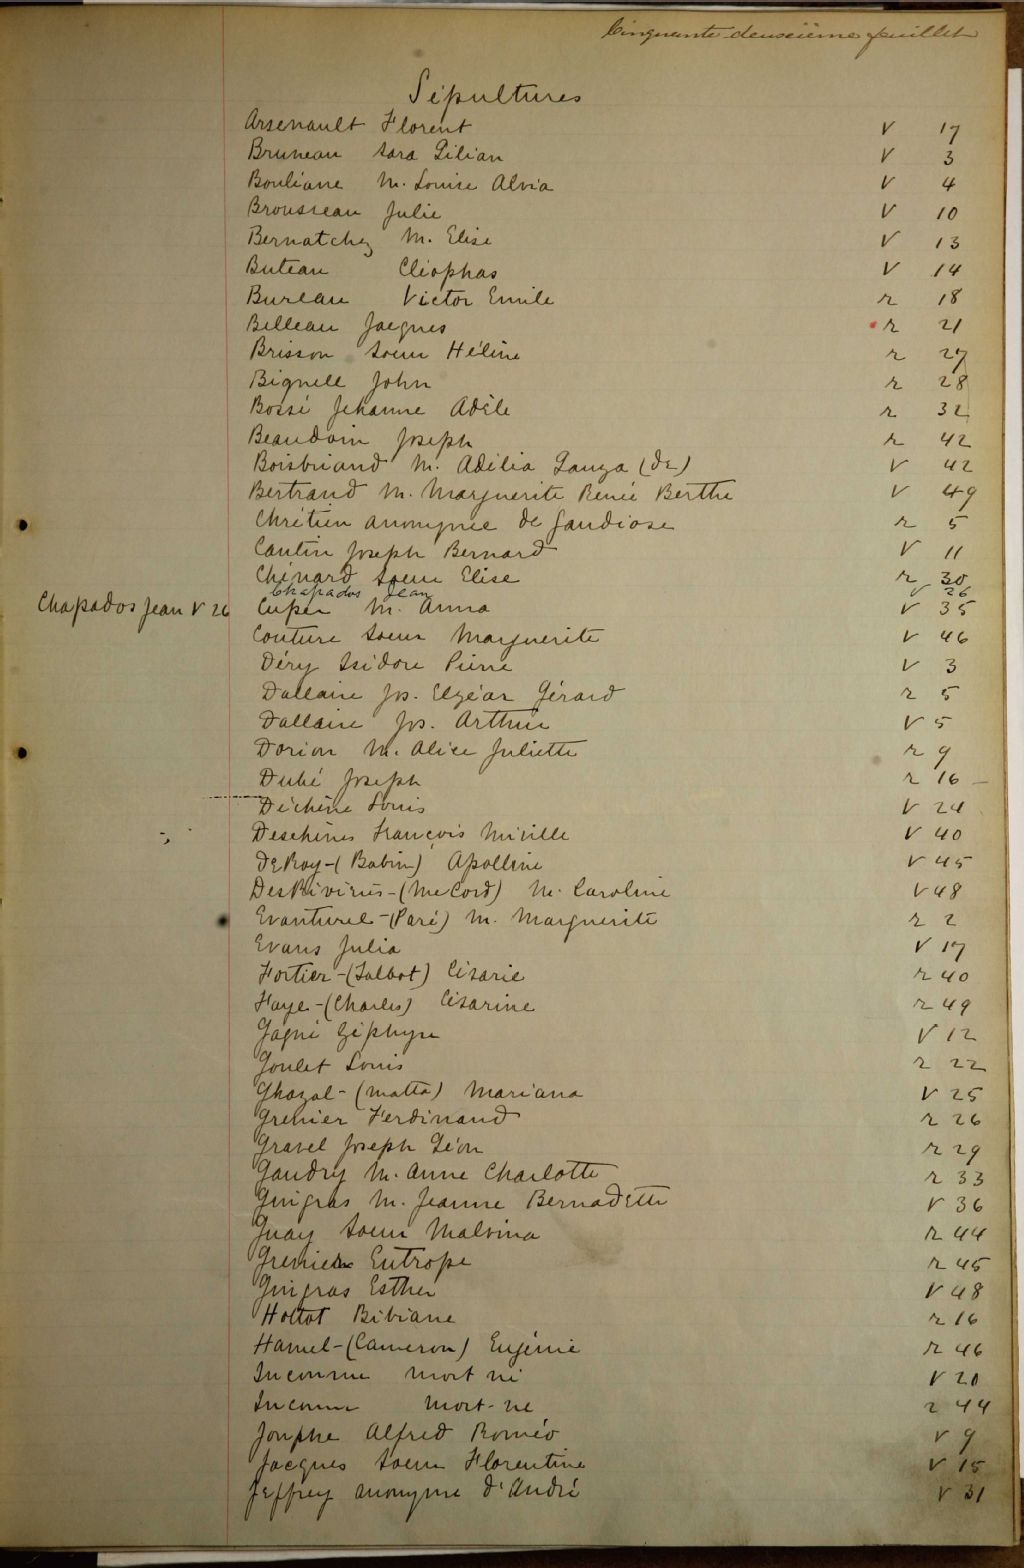 Cinquante deuxième feuillet
Sépultures
Arsenault Florent V 17
Bruneau Sara Lilian V 3
Bouliane M. Louise Alvia V 4
Brousseau Julie V 10
Bernatchez M. Elise V 13
Buteau Cléophas V 14
Bureau Victor Emile r 18
Belleau Jacques r 21
Brisson Soeur Hélène r 27
Bignell John r 28
Bossé Jehanne Adèle r 32
Beaudoin Joseph r 42
Boisbriand M. Adélia Lanza (de) V 42
Bertrand M. Marguerite Renée Berthe V 49
Chrétien anonymée de Gaudiose r 5
Cantin Joseph Bernard V 11
Chénard Soeur Elise r 30
Chapados Jean V 26
Chapados Jean V 26
Cuper M. Anna V 35
Couture Soeur Marguerite V 46
Déry Isidore Pierre V 3
Dallaire Js. Elzéar Gérard r 5
Dallaire Js. Arthur V 5
Dorion M. Alice Juliette r 9
Dubé Joseph r 16
Déchène Louis V 24
Deschènes François Miville V 40
DeRoy-(Babin) Apolline V 45
DesRivières-(McCord) M. Caroline V 48
Evanturel-(Paré) M. Marguerite r 2
Evans Julia V 17
Fortier-(Talbot) Césarie r 40
Faye-(Charles) Césarine r 49
Gagné Zéphyr V 12
Goulet Louis r 22
Ghazal-(Matta) Mariana V 25
Grenier Ferdinand r 26
Gravel Joseph Léon r 29
Gaudry M. Anne Charlotte r 33
Gingras M. Jeanne Bernadette V 36
Guay Soeur Malvina r 44
Grenier Eutrope r 45
Gingras Esther V 48
Hottot Bibiane r 16
Hamel-(Cameron) Eugénie r 46
Inconnu mort né V 20
Inconnu mort-né r 44
Jomphe Alfred Roméo V 9
Jacques Soeur Florentine V 15
Jeffrey anonyme d'André V 31